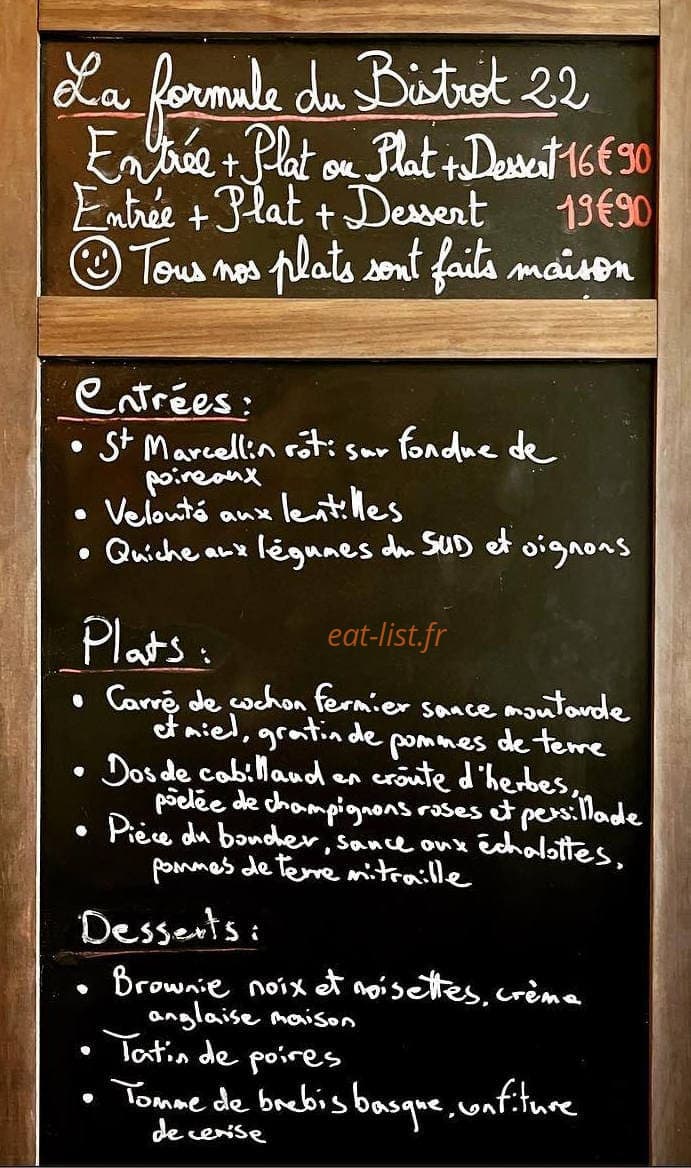 La formule du Bistrot 22
Entrée + Plat ou Plat + Dessert 16€90
Entrée + Plat + Dessert 19€90
Tous nos plats sont faits maison
Entrées :
• St Marcellin rôti sur fondue de
poireaux
• Velouté aux lentilles
• Quiche aux légumes du SUD et oignons
eat-list.fr
Plats :
• Carré de cochon fermier sauce moutarde
et miel, gratin de pommes de terre
• Dos de cabillaud en croûte d'herbes,
pôelée de champignons roses et persillade
• Pièce du boucher, sauce aux échalottes,
pommes de terre mitraille
Desserts :
• Brownie noix et noisettes, crème
anglaise maison
• Tatin de poires
• Tomme de brebis basque, confiture
de cerise